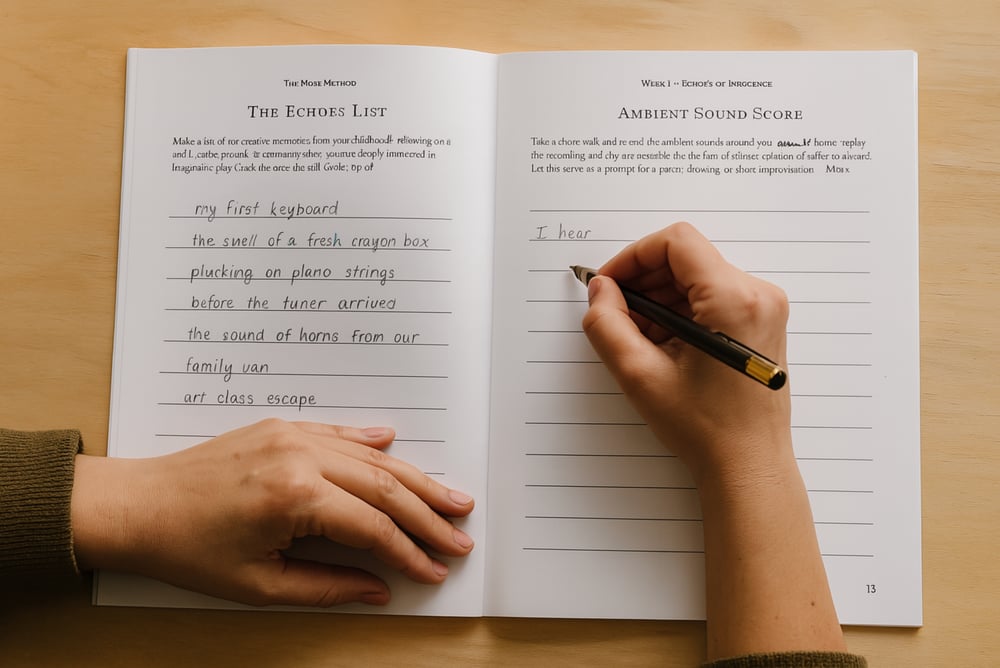 THE MOSE METHOD
THE ECHOES LIST
Make a list of ror creative memories from your childhood- reliowing on a
and deeply immersed in
Imaginaire play Crack the orce the still op of
my first keyboard
the smell of a fresh crayon box
plucking on piano strings
before the tuner arrived
the sound of horns from our
family van
art class escape
WEEK 1 -- ECHOE'S OF
AMBIENT SOUND SCORE
Take a chore walk and re end the ambient sounds around you home replay
the recomling and chy are the the fam of of saffer to
Let this serve as a prompt for a drowing or short improvisation
I hear
13